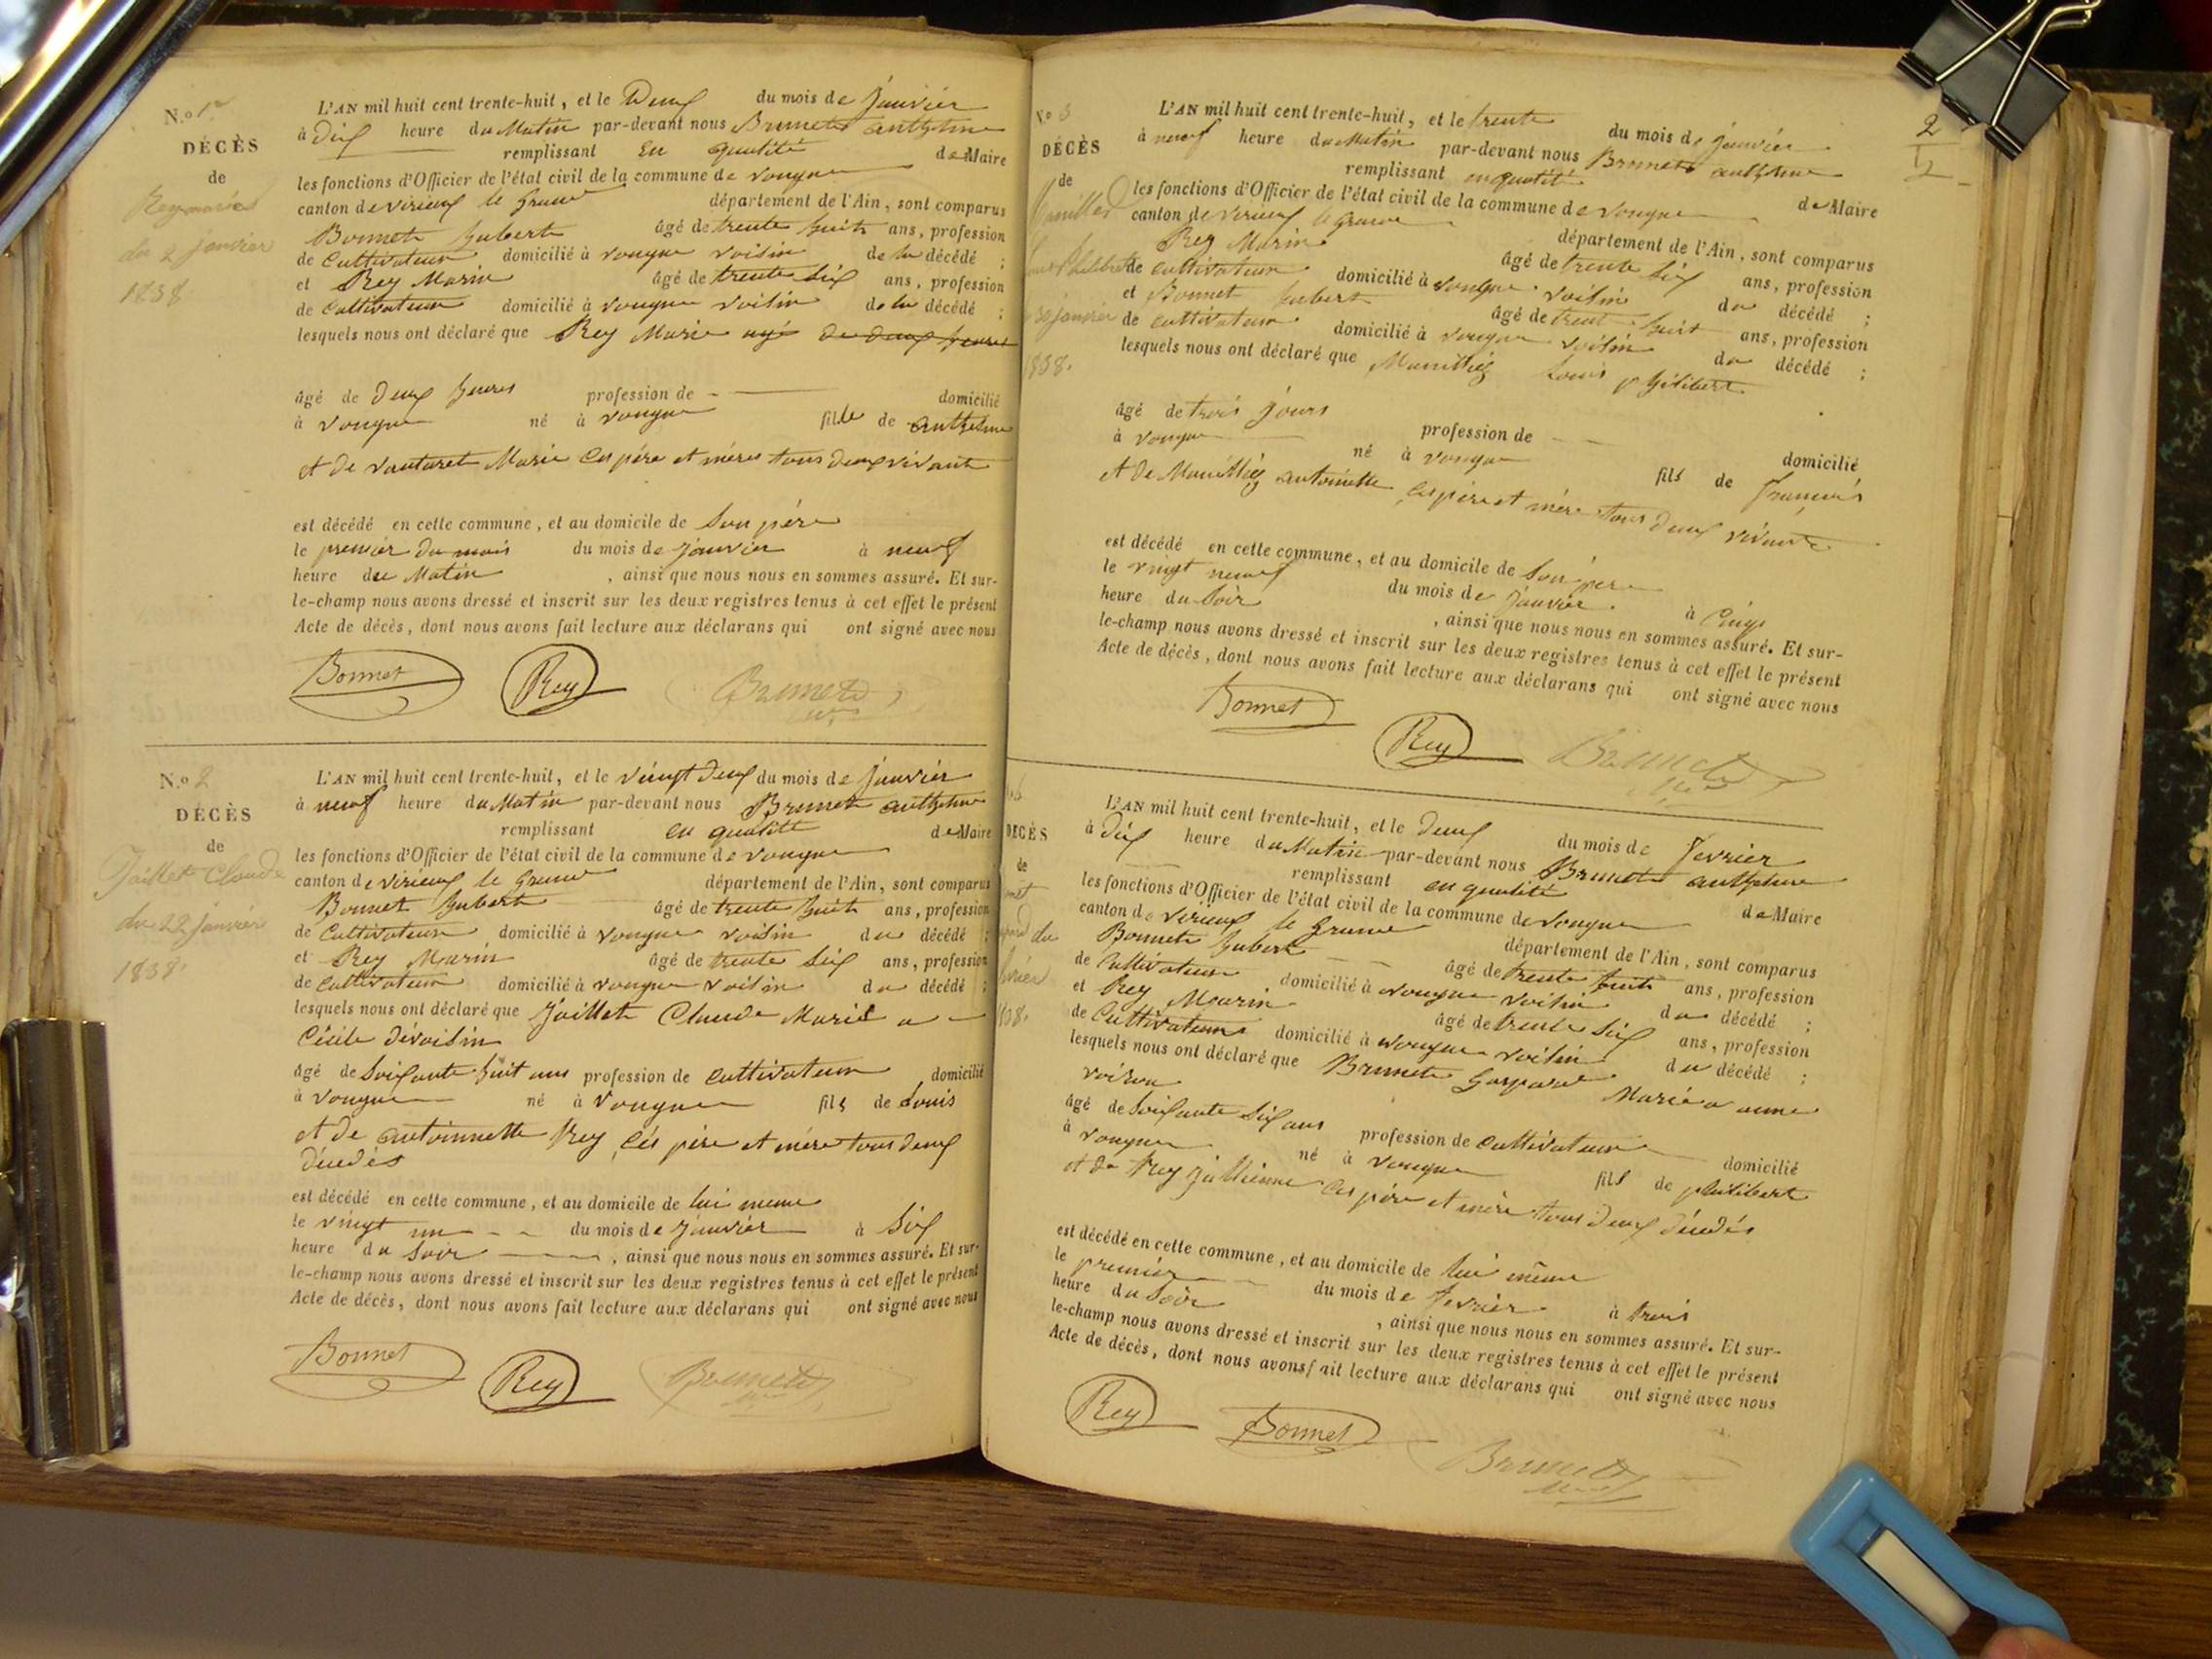 N.º 1er
DÉCÈS
de
Rey marie
du 2 janvier
1838
L'AN mil huit cent trente-huit, et le Deux du mois de janvier
à Dix heure du Matin par-devant nous Brunet anthelme
remplissant En qualité de Maire
les fonctions d'Officier de l'état civil de la commune de vongne
canton de virieux le Grand département de l'Ain, sont comparus
Bonnet hubert âgé de trente huit ans, profession
de Cultivateur domicilié à vongne voisin de la décédé ;
et Rey Marin âgé de trente six ans, profession
de Cultivateur domicilié à vongne voisin de la décédé ;
lesquels nous ont déclaré que Rey Marie agé de deux heures
âgé de Deux heures profession de - domicilié
à vongne né à vongne fille de anthelme
et de vautaret Marie Ces père et mère tous deux vivant
est décédé en cette commune, et au domicile de Son père
le premier du mois du mois de janvier à neuf
heure du Matin , ainsi que nous nous en sommes assuré. Et sur-
le-champ nous avons dressé et inscrit sur les deux registres tenus à cet effet le présent
Acte de décès, dont nous avons fait lecture aux déclarans qui ont signé avec nous
Bonnet Rey Brunet
N.º 2
DÉCÈS
de
Jaillet Claude
du 22 janvier
1838
L'AN mil huit cent trente-huit, et le vingt Deux du mois de janvier
à neuf heure du Matin par-devant nous Brunet anthelme
remplissant en qualité de Maire
les fonctions d'Officier de l'état civil de la commune de vongne
canton de virieux le Grand département de l'Ain, sont comparus
Bonnet hubert âgé de trente huit ans, profession
de Cultivateur domicilié à vongne voisin du décédé ;
et Rey Marin âgé de trente six ans, profession
de Cultivateur domicilié à vongne voisin du décédé ;
lesquels nous ont déclaré que Jaillet Claude Marié a
Cécile Dévoisin
âgé de Soixante huit ans profession de Cultivateur domicilié
à vongne né à vongne fils de Louis
et de antoinnette Rey Cés père et mère tous deux
décédés
est décédé en cette commune, et au domicile de lui meme
le vingt un du mois de janvier à six
heure du Soir , ainsi que nous nous en sommes assuré. Et sur-
le-champ nous avons dressé et inscrit sur les deux registres tenus à cet effet le présent
Acte de décès, dont nous avons fait lecture aux déclarans qui ont signé avec nous
Bonnet Rey Brunet
2
N.º 3
DÉCÈS
de
30 janvier
1838.
L'AN mil huit cent trente-huit, et le trente du mois de janvier
à neuf heure du Matin par-devant nous Brunet anthelme
remplissant en qualité de Maire
les fonctions d'Officier de l'état civil de la commune de vongne
canton de virieux le Grand département de l'Ain, sont comparus
Rey Marin âgé de trente six ans, profession
de cultivateur domicilié à vongne voisin du décédé ;
et Bonnet hubert âgé de trent huit ans, profession
de cultivateur domicilié à vongne voisin du décédé ;
lesquels nous ont déclaré que Louis philibert
âgé de trois jours profession de - domicilié
à vongne né à vongne fils de francois
et de antoinette Ces père et mère tous deux vivants
est décédé en cette commune, et au domicile de Son père
le vingt neuf du mois de janvier à Cinq
heure du Soir , ainsi que nous nous en sommes assuré. Et sur-
le-champ nous avons dressé et inscrit sur les deux registres tenus à cet effet le présent
Acte de décès, dont nous avons fait lecture aux déclarans qui ont signé avec nous
Bonnet Rey Brunet
DÉCÈS
de
L'AN mil huit cent trente-huit, et le Deux du mois de fevrier
à Dix heure du Matin par-devant nous Brunet anthelme
remplissant en qualité de Maire
les fonctions d'Officier de l'état civil de la commune de vongne
canton de virieux le Grand département de l'Ain, sont comparus
Bonnet hubert âgé de trente huit ans, profession
de Cultivateur domicilié à vongne voisin du décédé ;
et Rey Marin âgé de trente six ans, profession
de Cultivateur domicilié à vongne voisin du décédé ;
lesquels nous ont déclaré que Brunet Gaspard Marié a anne
voiron
âgé de Soixante Six ans profession de Cultivateur domicilié
à vongne né à vongne fils de philibert
et de Rey jullienne Ces père et mère tous deux décédés
est décédé en cette commune, et au domicile de lui même
le premier du mois de fevrier à trois
heure du Soir , ainsi que nous nous en sommes assuré. Et sur-
le-champ nous avons dressé et inscrit sur les deux registres tenus à cet effet le présent
Acte de décès, dont nous avons fait lecture aux déclarans qui ont signé avec nous
Rey Bonnet Brunet